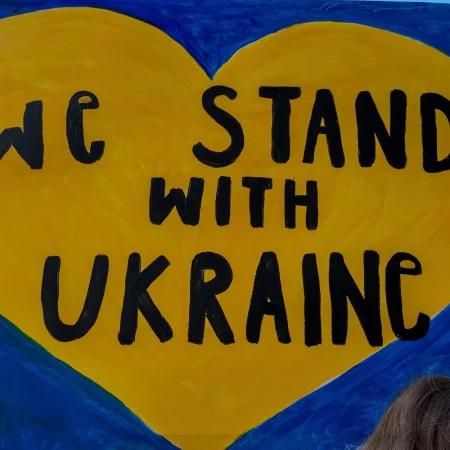 We STAND
WITH
UKRAINe